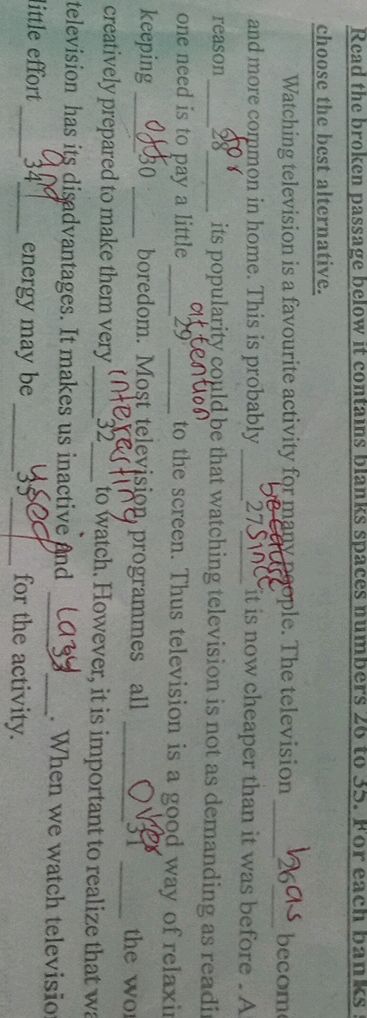 Read the broken passage below it contains blanks spaces numbers 26 to 35. For each banks
choose the best alternative.
Watching television is a favourite activity for many people. The television ___26___ has become
and more common in home. This is probably ___27___ because since it is now cheaper than it was before . A
reason ___28___ for its popularity could be that watching television is not as demanding as readi
one need is to pay a little ___29___ attention to the screen. Thus television is a good way of relaxin
keeping ___30___ off boredom. Most television programmes all ___31___ over the wor
creatively prepared to make them very ___32___ interesting to watch. However, it is important to realize that wa
television has its disadvantages. It makes us inactive and ___33___ lazy . When we watch televisio
little effort ___34___ and energy may be ___35___ used for the activity.